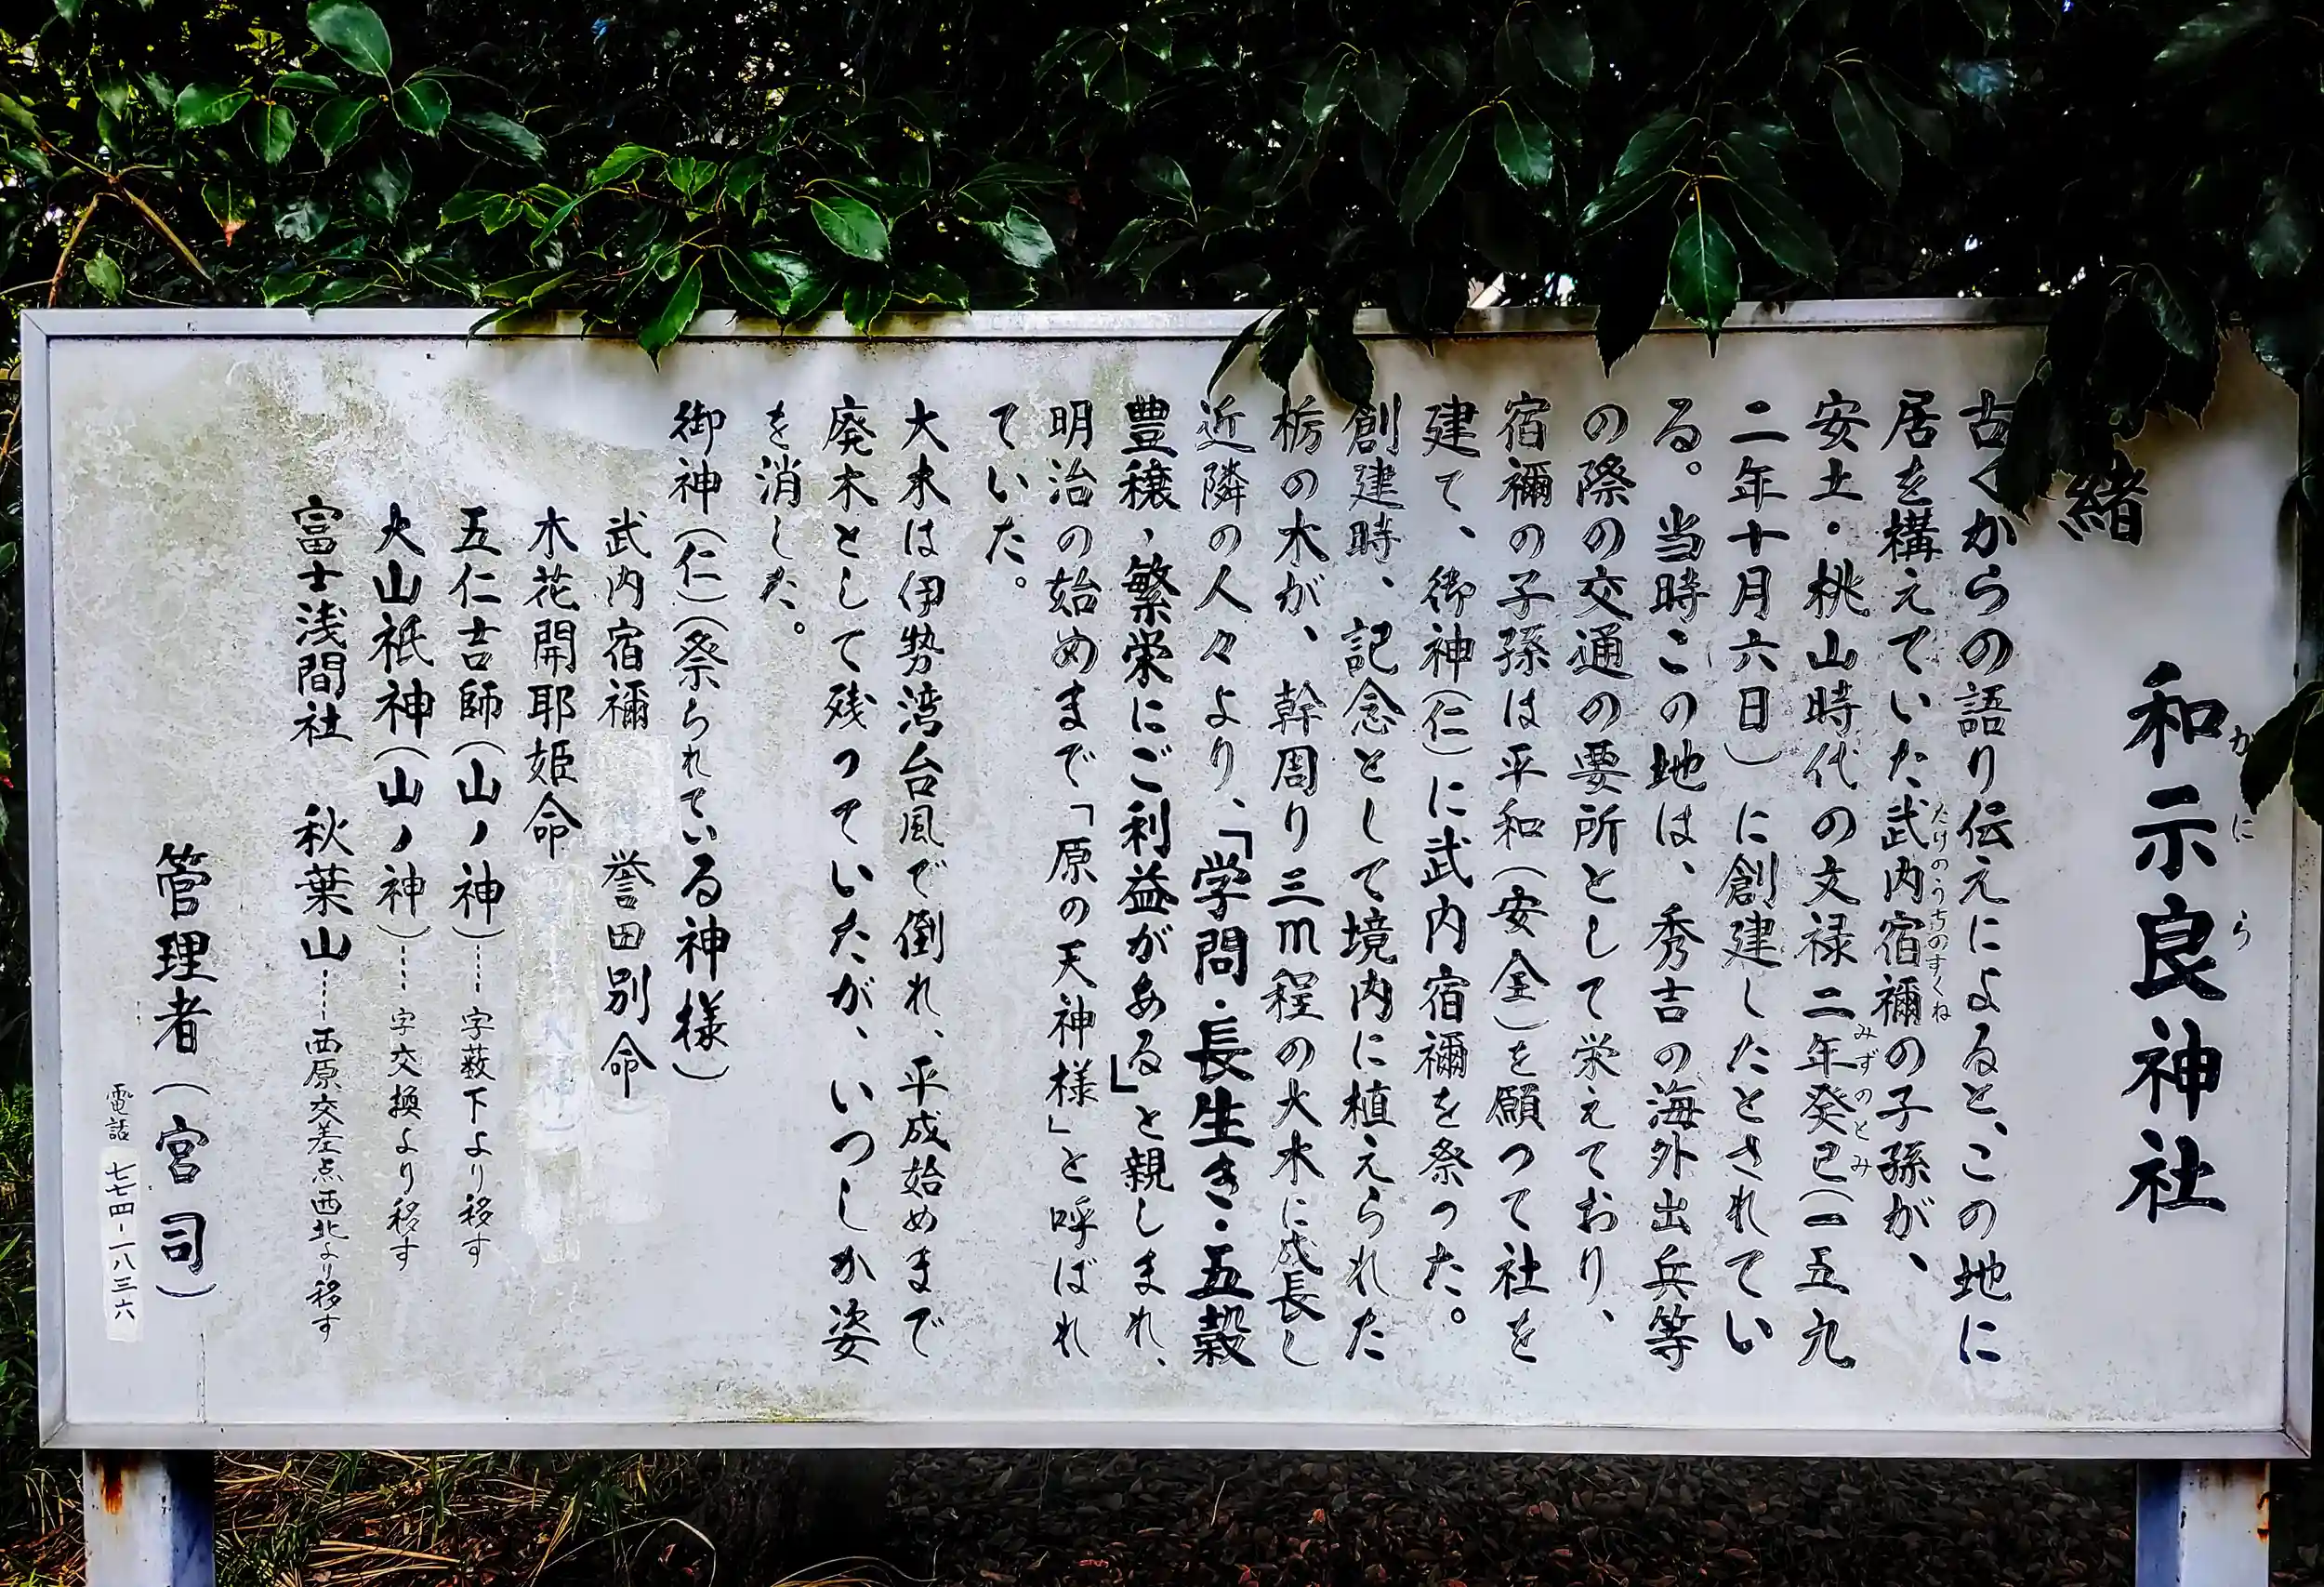 和示良神社
かにら
緒
古くからの語り伝えによると、この地に
居を構えていた武内宿禰の子孫が、
たけのうちのすくね
安土・桃山時代の文禄二年癸已(一五九
みずのとみ
二年十月六日)に創建したとされてい
る。当時この地は、秀吉の海外出兵等
の際の交通の要所として栄えており、
宿禰の子孫は平和(安全)を願つて社を
建て、御神(仁)に武内宿禰を祭った。
創建時、記念として境内に植えられた
栃の木が、幹周り三m程の大木に成長し
近隣の人々より、「学問・長生き・五穀
豊穣・繁栄にご利益がある」と親しまれ、
明治の始めまで「原の天神様」と呼ばれ
ていた。
大木は伊勢湾台風で倒れ、平成始めまで
廃木として残っていたが、いつしか姿
を消した。
御神(仁)(祭られている神様)
武内宿禰 誉田別命
木花開耶姫命
五仁吉師(山ノ神)……字薮下より移す
大山祇神(山ノ神)……字交換より移す
富士浅間社 秋葉山……西原交差点西北より移す
管理者(宮司)
電話 七七四-一八三六